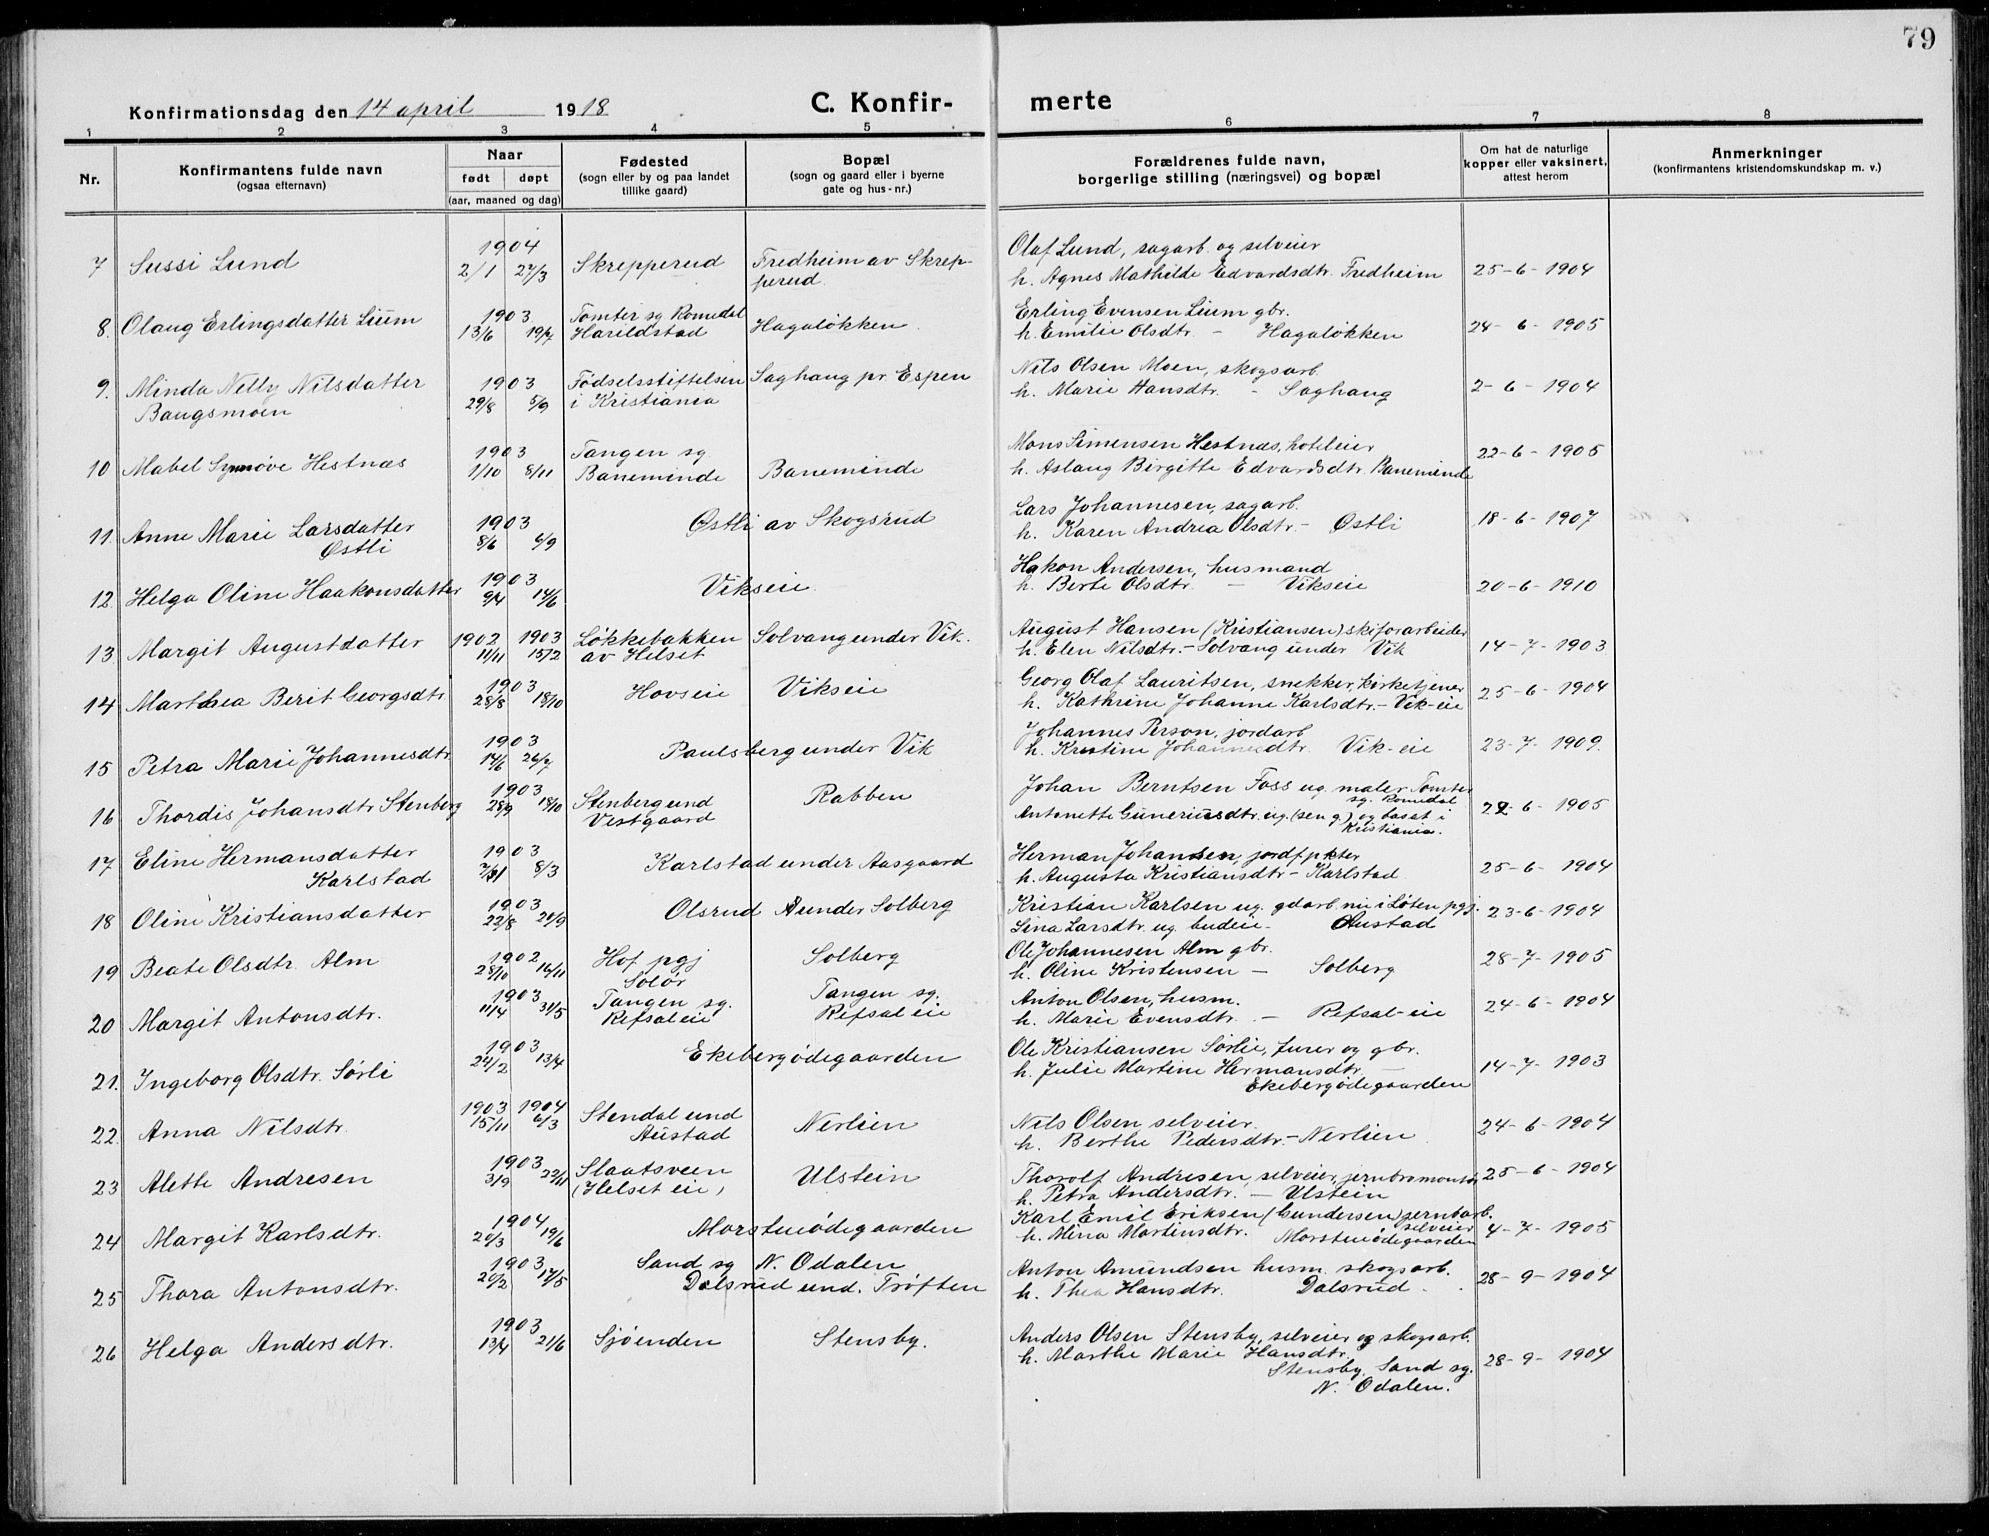 79
Konfirmationsdag den 14 april 1918 C. Konfir- merte
1 2 3 4 5 6 7 8
Nr. Konfirmantens fulde navn (ogsaa efternavn) Naar født døpt (aar, maaned og dag) Fødested (sogn eller by og paa landet tillike gaard) Bopæl (sogn og gaard eller i byerne gate og hus-nr.) Forældrenes fulde navn, borgerlige stilling (næringsvei) og bopæl Om hat de naturlige kopper eller vaksinert, attest herom Anmerkninger (konfirmantens kristendomskundskap m. v.)
7 Sussi Lund 1904 2/1 27/3 Skrepperud Fredheim av Skrep-perud. Olaf Lund, sagarb. og selveier
h. Agnes Mathilde Edvardsdtr. Fredheim 25-6-1904
8. Olaug Erlingsdatter Lium 1903 13/6 19/7 Tomter sg Romedal Harildstad Hagaløkken Erling Evensen Lium gbr.
h. Emilie Olsdtr. - Hagaløkken 24-6-1905
9. Minda Nelly Nilsdatter Baugsmoen 1903 29/8 5/9 Fødselsstiftelsen i Kristiania Saghaug pr. Espen Nils Olsen Moen, skogsarb.
h. Marie Hansdtr. - Saghaug 2-6-1904
10 Mabel Synnøve Hestnæs 1903 1/10 8/11 Tangen sg. Baneminde Baneminde Mons Simensen Hestnæs, hoteleier
h. Aslaug Birgitte Edvardsdtr. Baneminde 22-6-1905
11. Anne Marie Larsdatter Østli 1903 8/6 6/9 Østli av Skogsrud Lars Johannesen, sagarb.
h. Karen Andrea Olsdtr. - Østli 18-6-1907
12. Helga Oline Haakonsdatter 1903 9/4 14/6 Vikseie Hakon Andersen, husmand
h. Berte Olsdtr. - Vikseie 20-6-1910
13 Margit Augustdatter 1902 11/11 1903 15/2 Løkkebakken av Helset Solvang under Vik. August Hansen (Kristiansen) skiforarbeider
h. Elen Nilsdtr. - Solvang under Vik 14-7-1903
14 Marthea Berit Georgsdtr. 1903 28/8 18/10 Hovseie Vikseie Georg Olaf Lauritsen, snekker, kirketjener
h. Kathrine Johanne Karlsdtr. - Vik-eie 25-6-1904
15 Petra Marie Johannesdtr. 1903 14/6 26/7 Paulsberg under Vik Johannes Person, jordarb
h. Kristine Johannesdtr. Vik-eie 23-7-1909.
16 Thordis Johansdtr Stenberg 1903 28/9 18/10 Stenberg und Vestgaard Rabben Johan Berntsen Foss ug. maler Tomter sg. Romedal
Antonette Guneriusdtr. ug. (sen g.) og bosat i Kristiania. 22-6-1905
17 Eline Hermansdatter Karlstad 1903 8/3 Karlstad under Aasgaard Herman Johansen, jordfpkter
h. Augusta Kristiansdtr - Karlstad 25-6-1904
18 Oline Kristiansdatter 1903 22/8 20/9 Olsrud under Solberg Kristian Karlsen ug. gdarb. nu i Løten pgj.
Sina Larsdtr. ug. budeie - Austad 23-6-1904
19 Beate Olsdtr. Alm 1902 28/10 16/11 Hof pgj Solør Solberg Ole Johannesen Alm gbr.
h. Oline Kristensen - Solberg 28-7-1905
20 Margit Antonsdtr. 1903 11/4 31/5 Tangen sg. Refsaleie Tangen sg. Refsaleie Anton Olsen, husm.
h. Marie Evensdtr. - Refsal-eie 24-6-1904
21. Ingeborg Olsdtr. Sørli 1903 24/2 13/4 Ekebergødegaarden Ole Kristiansen Sørlie, furer og gbr.
h. Julie Martine Hermansdtr. - Ekebergødegaarden 14-7-1903
22. Anna Nilsdtr. 1903 15/11 1904 6/3 Stendal und Austad Nerlien Nils Olsen, selveier.
h. Berthe Pedersdtr. - Nerlien 24-6-1904
23 Alette Andresen 1903 3/9 22/11 Slaatsveen (Helset eie) Ulstein Thorolf Andresen, selveier, jernbramontør
h. Petra Andersdtr. - Ulstein 25-6-1904
24 Margit Karlsdtr. 1904 20/3 19/6 Morstuødegaarden Karl Emil Eriksen (Gundersen) jernbarb. selveier
h. Mina Martinsdtr. Morstuødegaarden 4-7-1905
25 Thora Antonsdtr. 1903 20/2 17/5 Sand sg N. Odalen Dalsrud und. Trøften Anton Amundsen husm. skogsarb.
h. Thea Hansdtr. Dalsrud. 28-9-1904
26 Helga Andersdtr. 1903 13/4 21/6 Sjøenden Stensby. Anders Olsen Stensby, selveier og skogsarb.
h. Marthe Marie Hansdtr. Stensby, Sand sg. N. Odalen. 28-9-1904